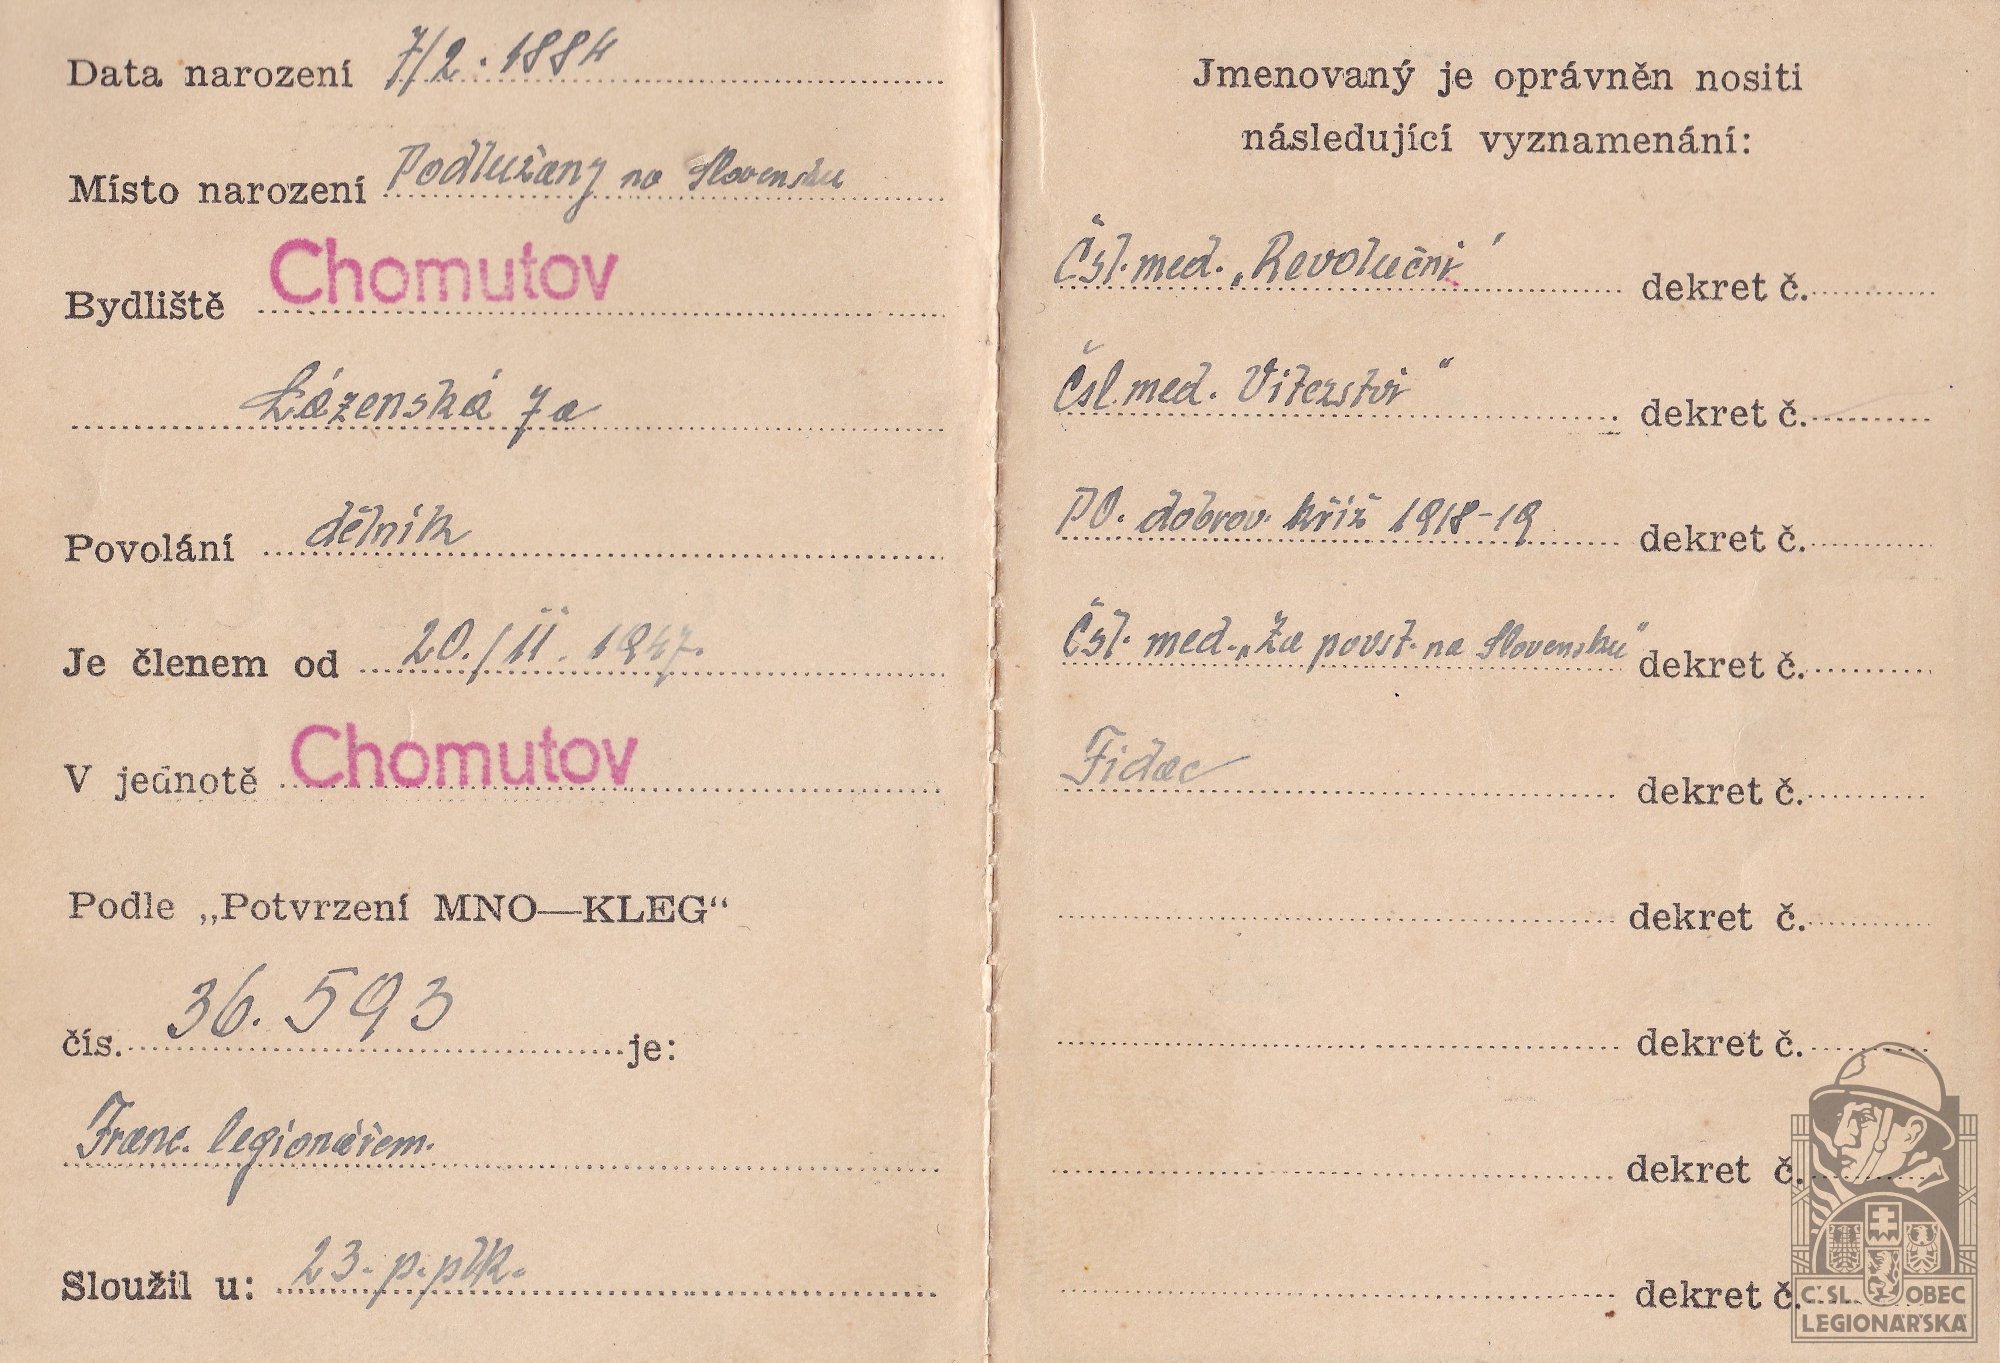 Data narození 7/2. 1884
Místo narození Podlužany na Slovensku
Bydliště Chomutov
Lázenská 7a
Povolání dělník
Je členem od 20./II. 1947.
V jednotě Chomutov
Podle „Potvrzení MNO—KLEG“
čís. 36.593 je:
Franc. legionářem.
Sloužil u: 23. p. plk.
Jmenovaný je oprávněn nositi
následující vyznamenání:
Čsl. med. „Revoluční" dekret č.
Čsl. med. Vítezství" dekret č.
PO. dobrov. kříž 1918-19 dekret č.
Čsl. med. „Za povst. na Slovensku" dekret č.
Fidac dekret č.
dekret č.
dekret č.
dekret č.
dekret č.
ČSL. OBEC
LEGIONÁŘSKÁ